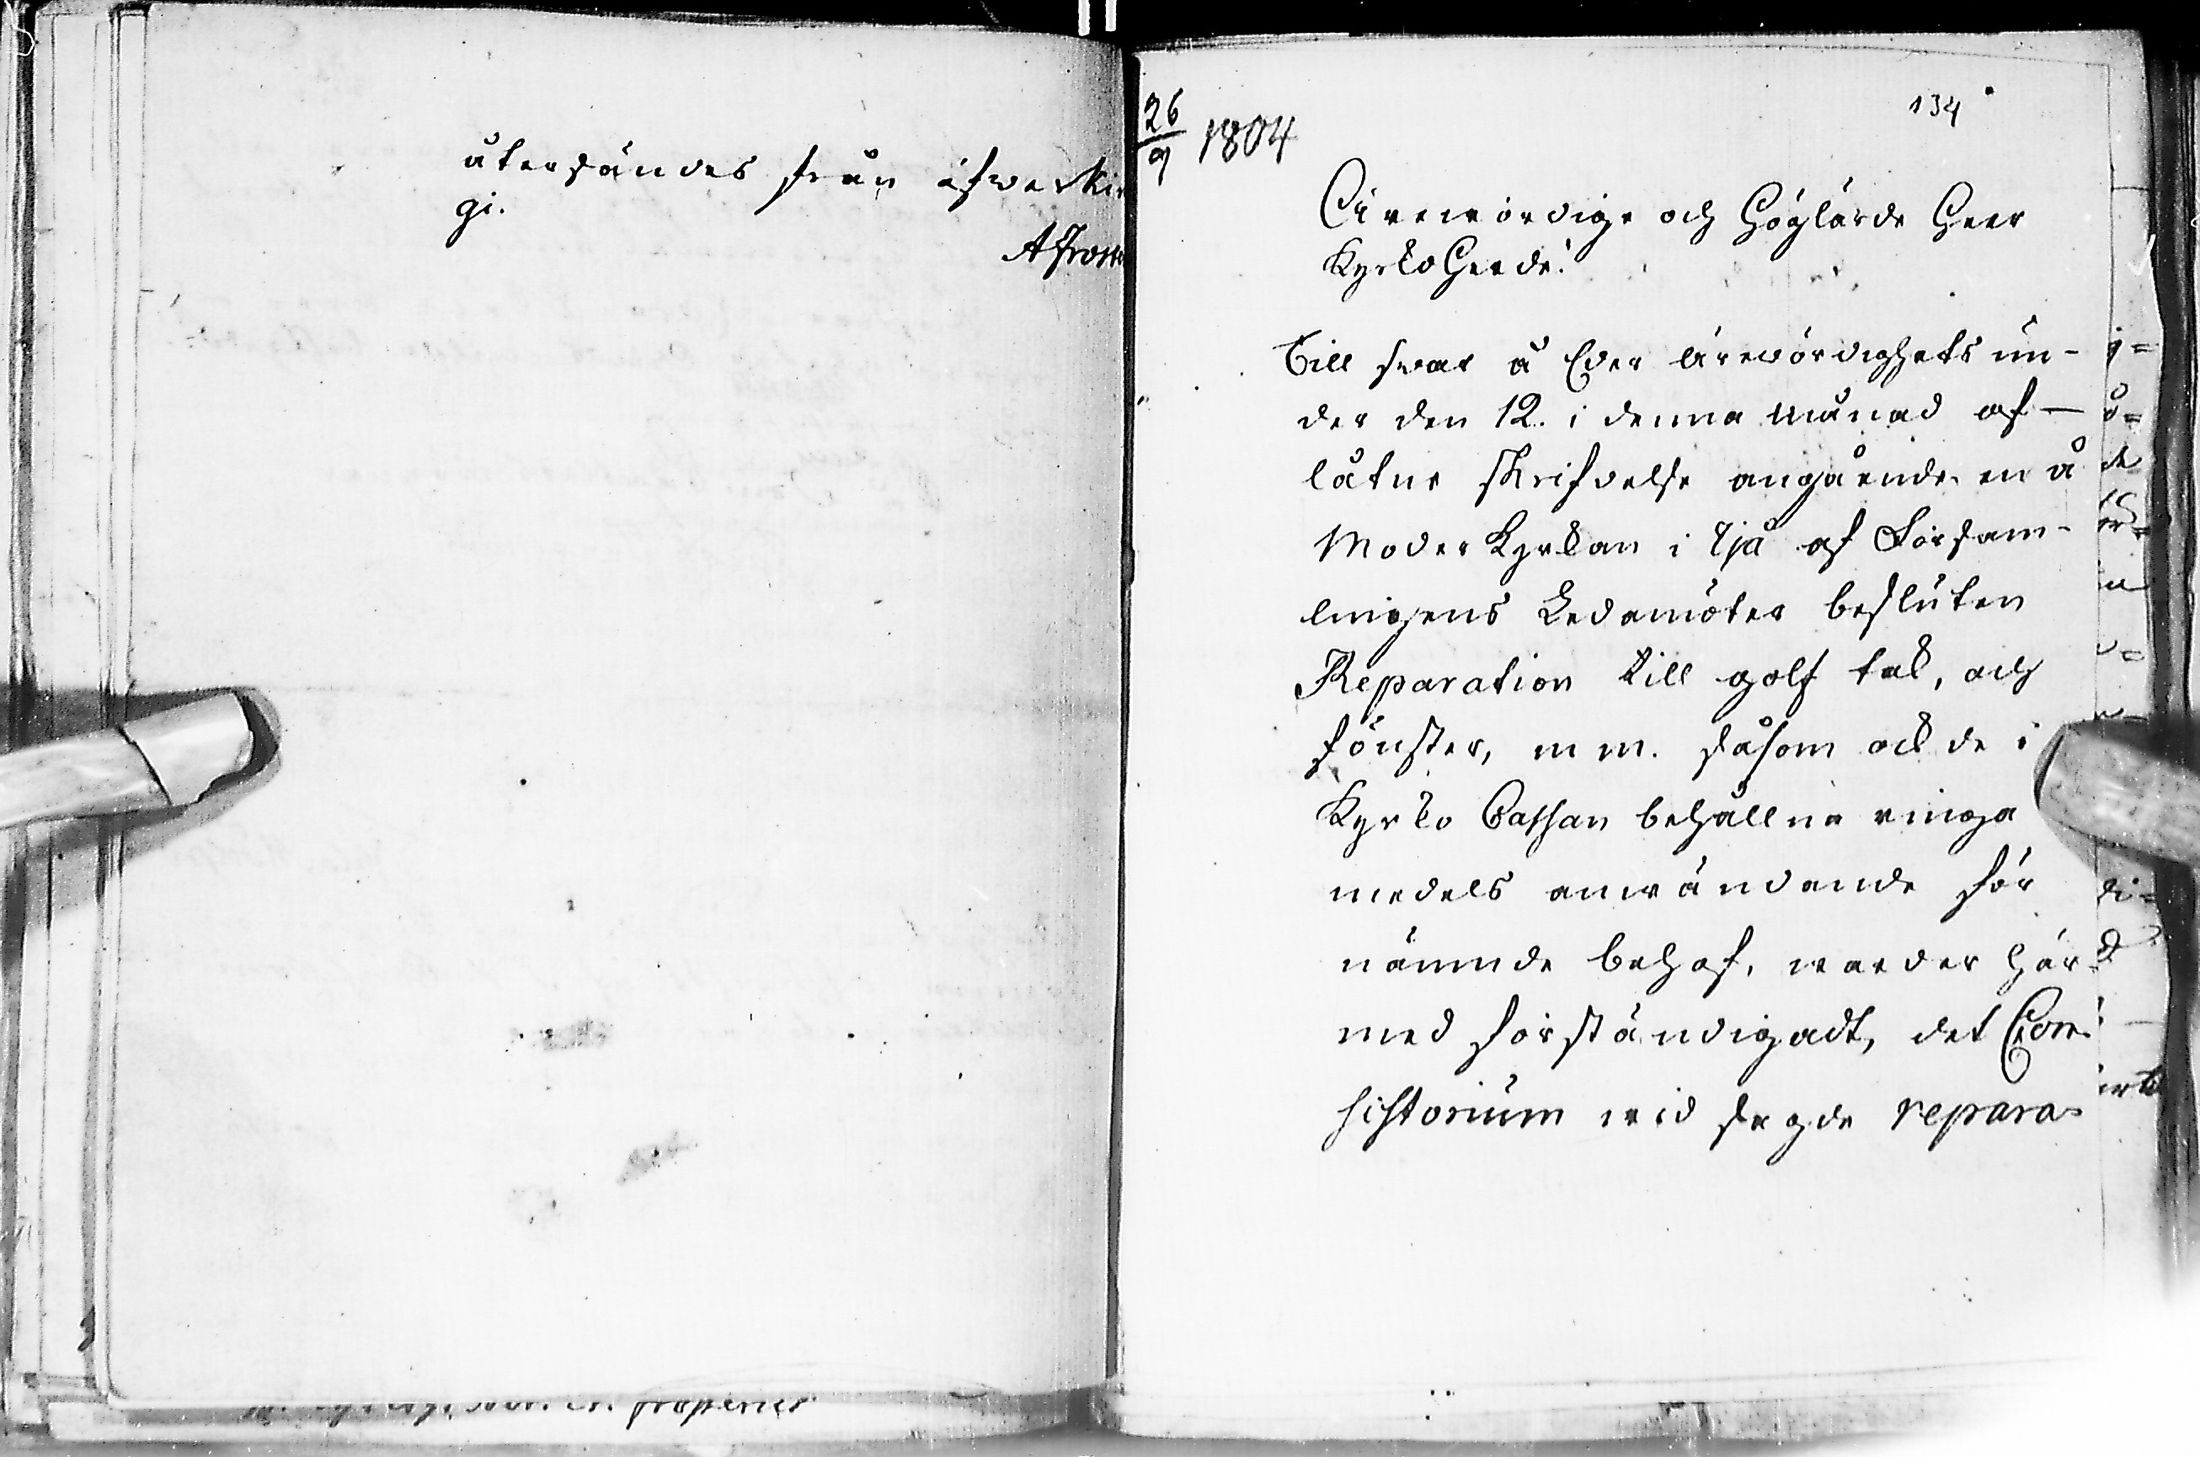 återsändes från
gi.
26/9 1804
134
Ärewördige och Höglärde Herr
KyrkoHerde!
Till svar å Eder Ärewördighets un-
der den 12. i denna månad af-
låtne skrifvelse angående en å
Moder Kyrkan i Ijå af Försam-
lingens Ledamöter besluten
Reparation till golf tak, och
fönster, m m. såsom ock de i
Kyrko Cassan behållne ringa
medels användande för
nämnde behof, warder här-
med förständigadt, det Con-
sistorium wid sagde repara-